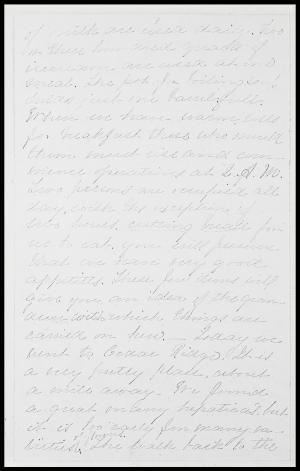 of milk are used daily. Two
or three hundred quarts of
icecream are used at one
meal. The pot for boiling
holds just one barrel full.
When we have warm rolls
for breakfast those who mould
them must rise and com-
mence operations at 2 A.M.
Two persons are occupied all
day, with the exception of
two hours, cutting bread for
us to eat, you will perceive
that we have very good
appetites. These few items will
give you an idea of the gran
deur with which things are
carried on here. — Today we
went to Cedar Ridge. It is
a very pretty place, about
a mile away. We found
a great many hepaticas, but
it is too early for many va-
rieties. The walk back to the